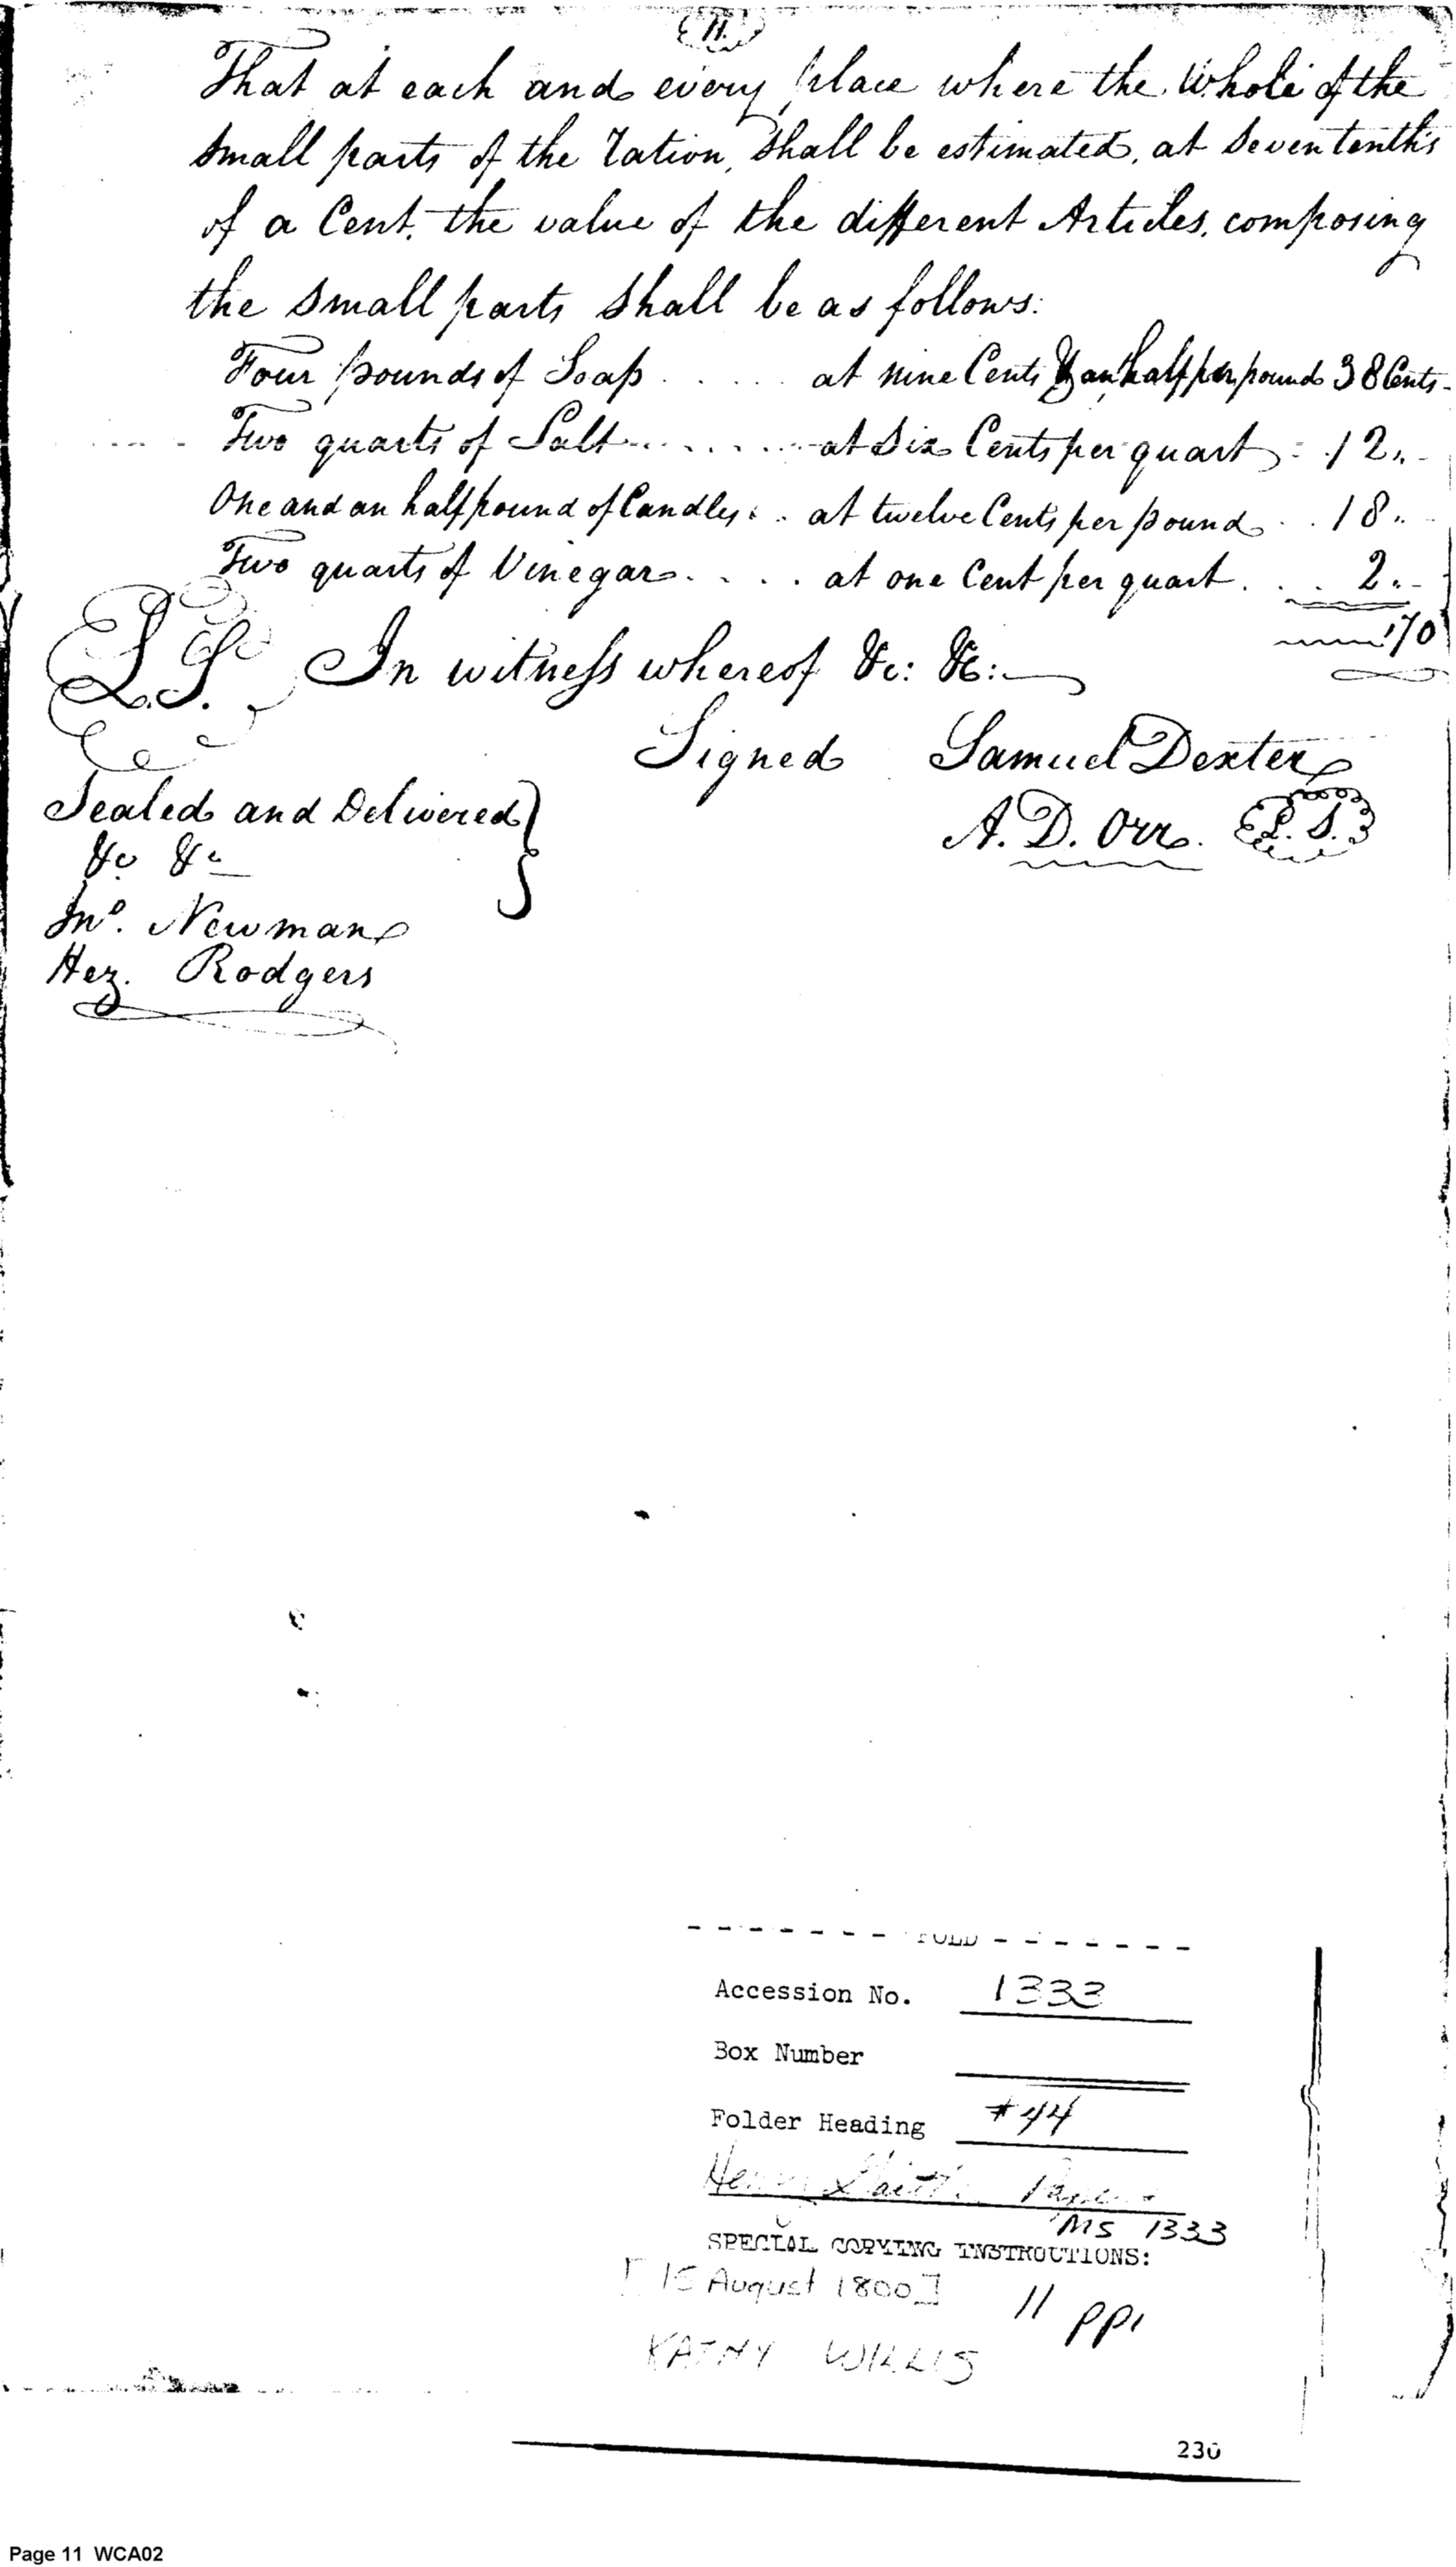 11.
That at each and every place where the whole of the
small parts of the ration, shall be estimated, at seven tenths
of a Cent, the value of the different Articles, composing
the small parts shall be as follows:
Four pounds of Soap ..... at nine Cents & an half per pound 38 Cents-
Two quarts of Salt ....... at six Cents per quart = 12"-
One and an half pound of Candles .. at twelve Cents per pound .. 18"
Two quarts of Vinegar .... at one Cent per quart ... 2"-
70
L.S. In witness whereof &c: &c:
Signed Samuel Dexter
Sealed and Delivered
A. D. Orr. L.S.
&c &c
Jno. Newman
Hez. Rodgers
FOLD
Accession No. 1333
Box Number
Folder Heading #44
Papers
MS 1333
SPECIAL COPYING INSTRUCTIONS:
[15 August 1800] 11 pp.
KATHY WILLIS
230
Page 11 WCA02